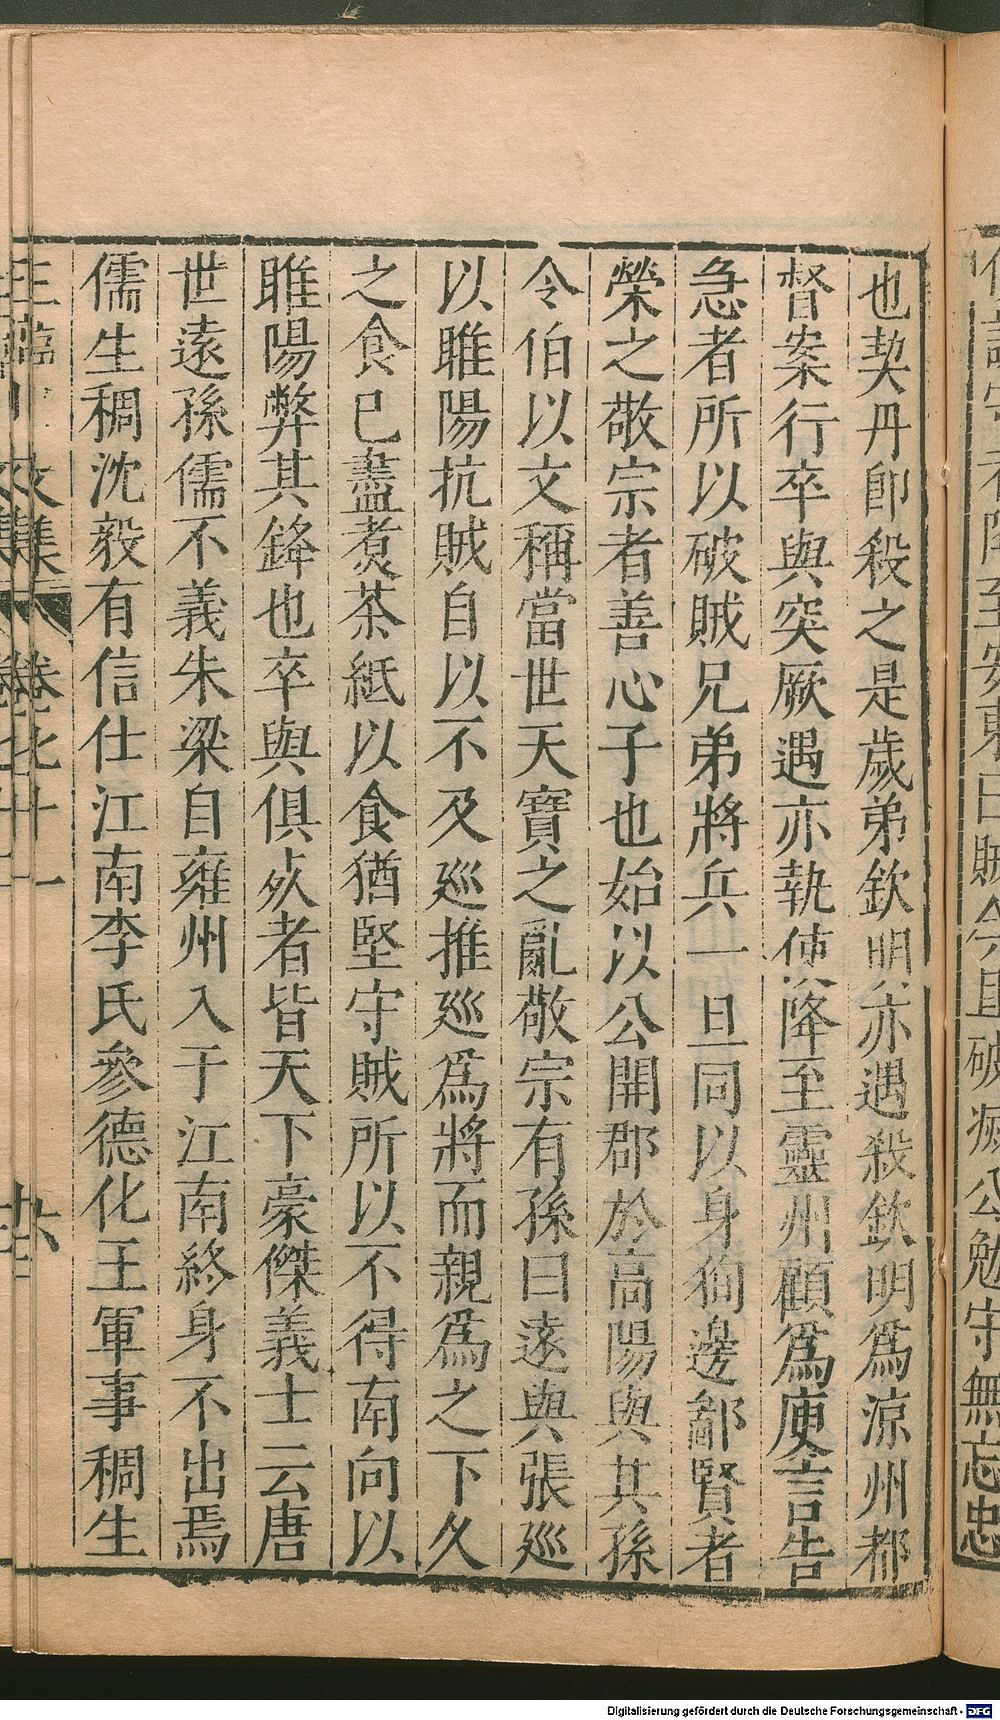 也契丹卽殺之是歲弟欽明亦遇殺欽明爲涼州都
督案行卒與突厥遇亦執使降至靈州顧爲庾言告
急者所以破賊兄弟將兵一旦同以身徇邊鄙賢者
榮之敬宗者善心子也始以公開郡於高陽與其孫
令伯以文稱當世天寶之亂敬宗有孫曰遠與張廵
以睢陽抗賊自以不及廵推廵爲將而親爲之下久
之食已盡煮茶紙以食猶堅守賊所以不得南向以
睢陽弊其鋒也卒與俱死者皆天下豪傑義士云唐
世遠孫儒不義朱梁自雍州入于江南終身不出焉
儒生稠沈毅有信仕江南李氏參德化王軍事稠生
文集 卷七十一
Digitalisierung gefördert durch die Deutsche Forschungsgemeinschaft - DFG